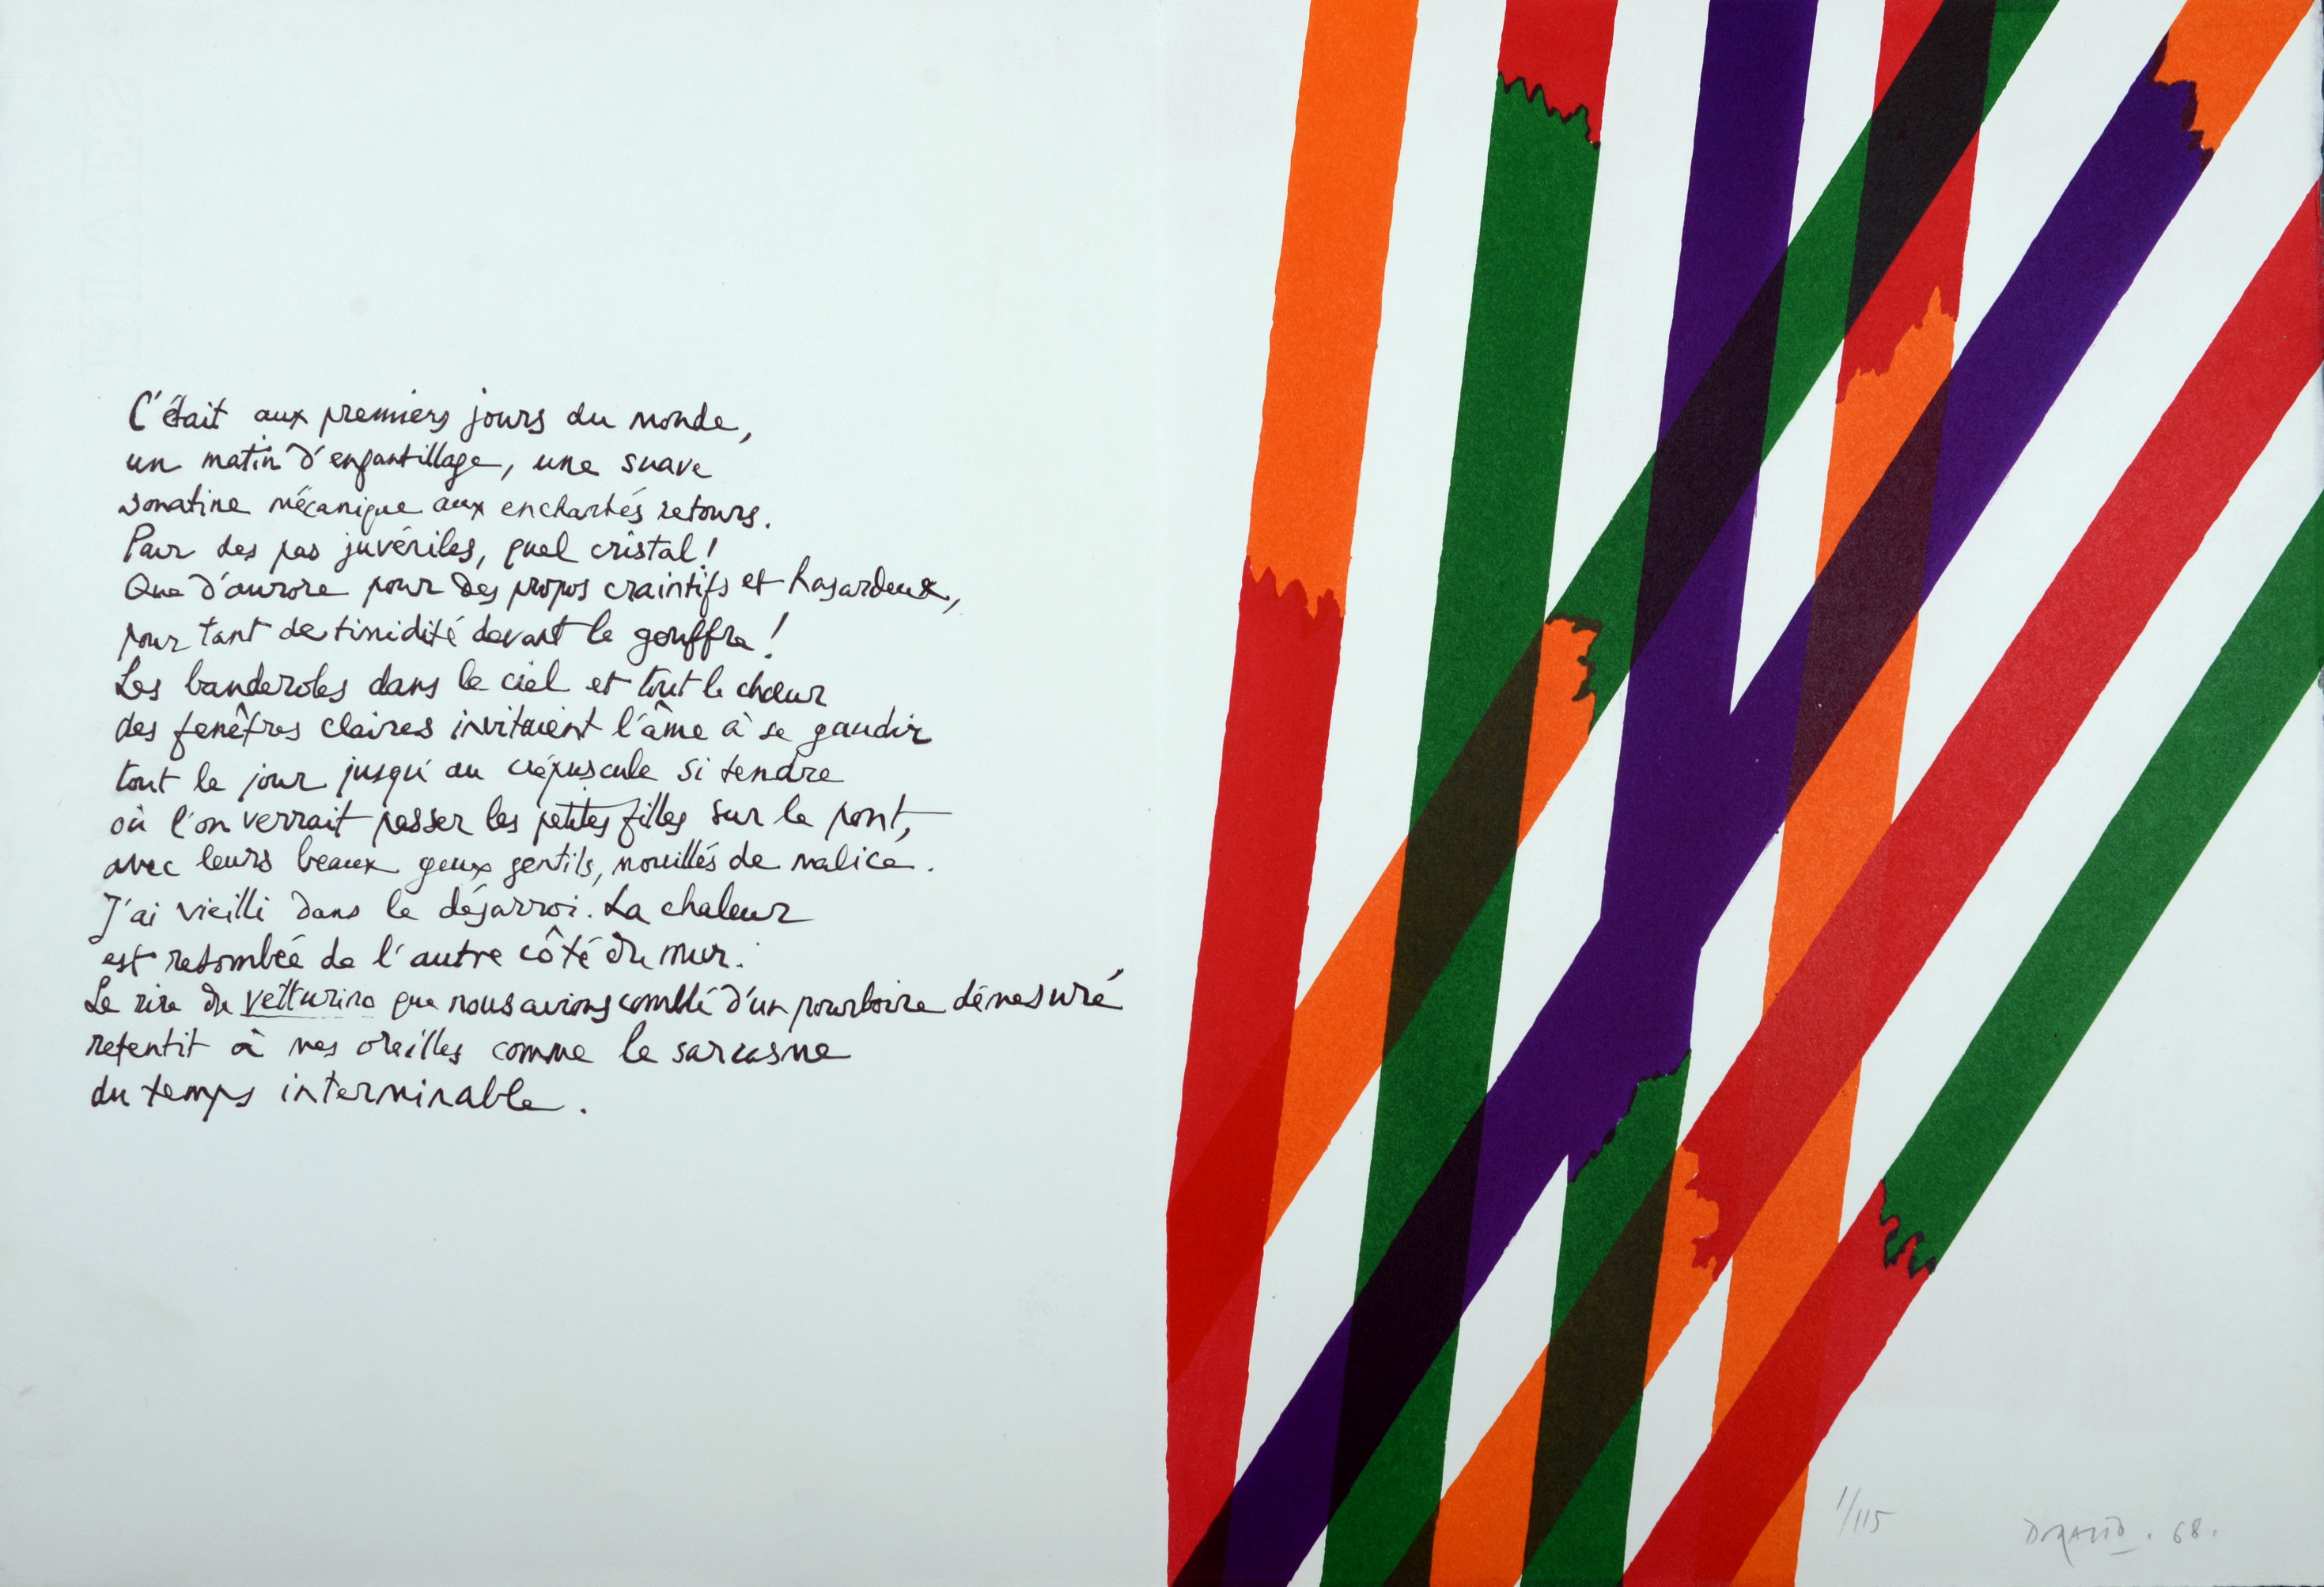 C'était aux premiers jours du monde,
un matin d'enfantillage, une suave
sonatine mécanique aux enchantés retours.
Pour des pas juvéniles, quel cristal!
Que d'aurore pour des propos craintifs et hasardeux,
pour tant de timidité devant le gouffre!
Les banderoles dans le ciel et tout le chœur
des fenêtres claires invitaient l'âme à se gaudir
tout le jour jusqu'au crépuscule si tendre
où l'on verrait passer les petites filles sur le pont,
avec leurs beaux yeux gentils, mouillés de malice.
J'ai vieilli dans le désarroi. La chaleur
est retombée de l'autre côté du mur.
Le rire du vetturino que nous avions comblé d'un pourboire démesuré
retentit à mes oreilles comme le sarcasme
du temps interminable.
1/115
DORAZIO. 68.